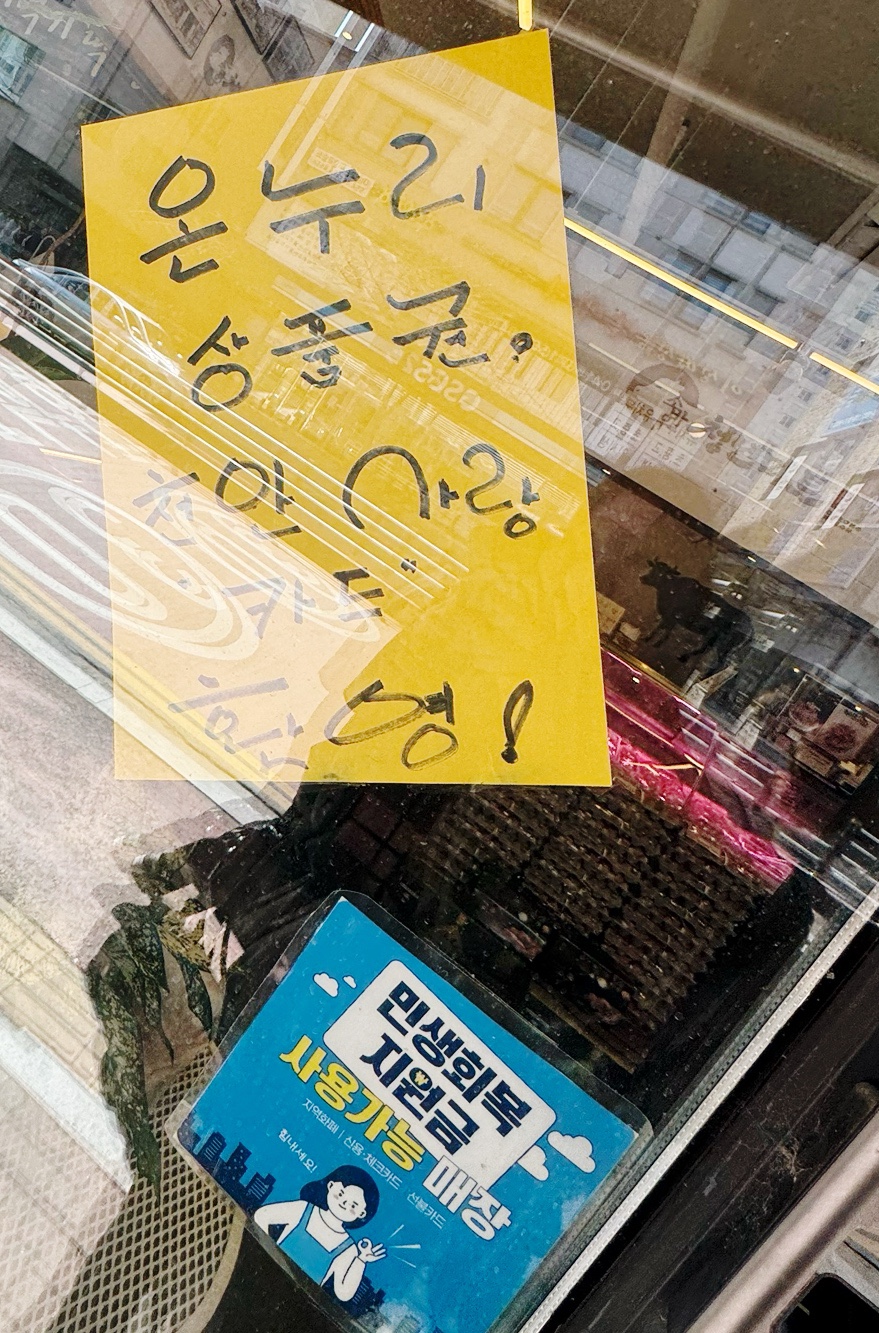 온누리
상품권.
천안사랑
카드"
환영!
민생회복
지원금
사용가능 매장
지역화폐 | 신용·체크카드 선불카드
힘내세요!